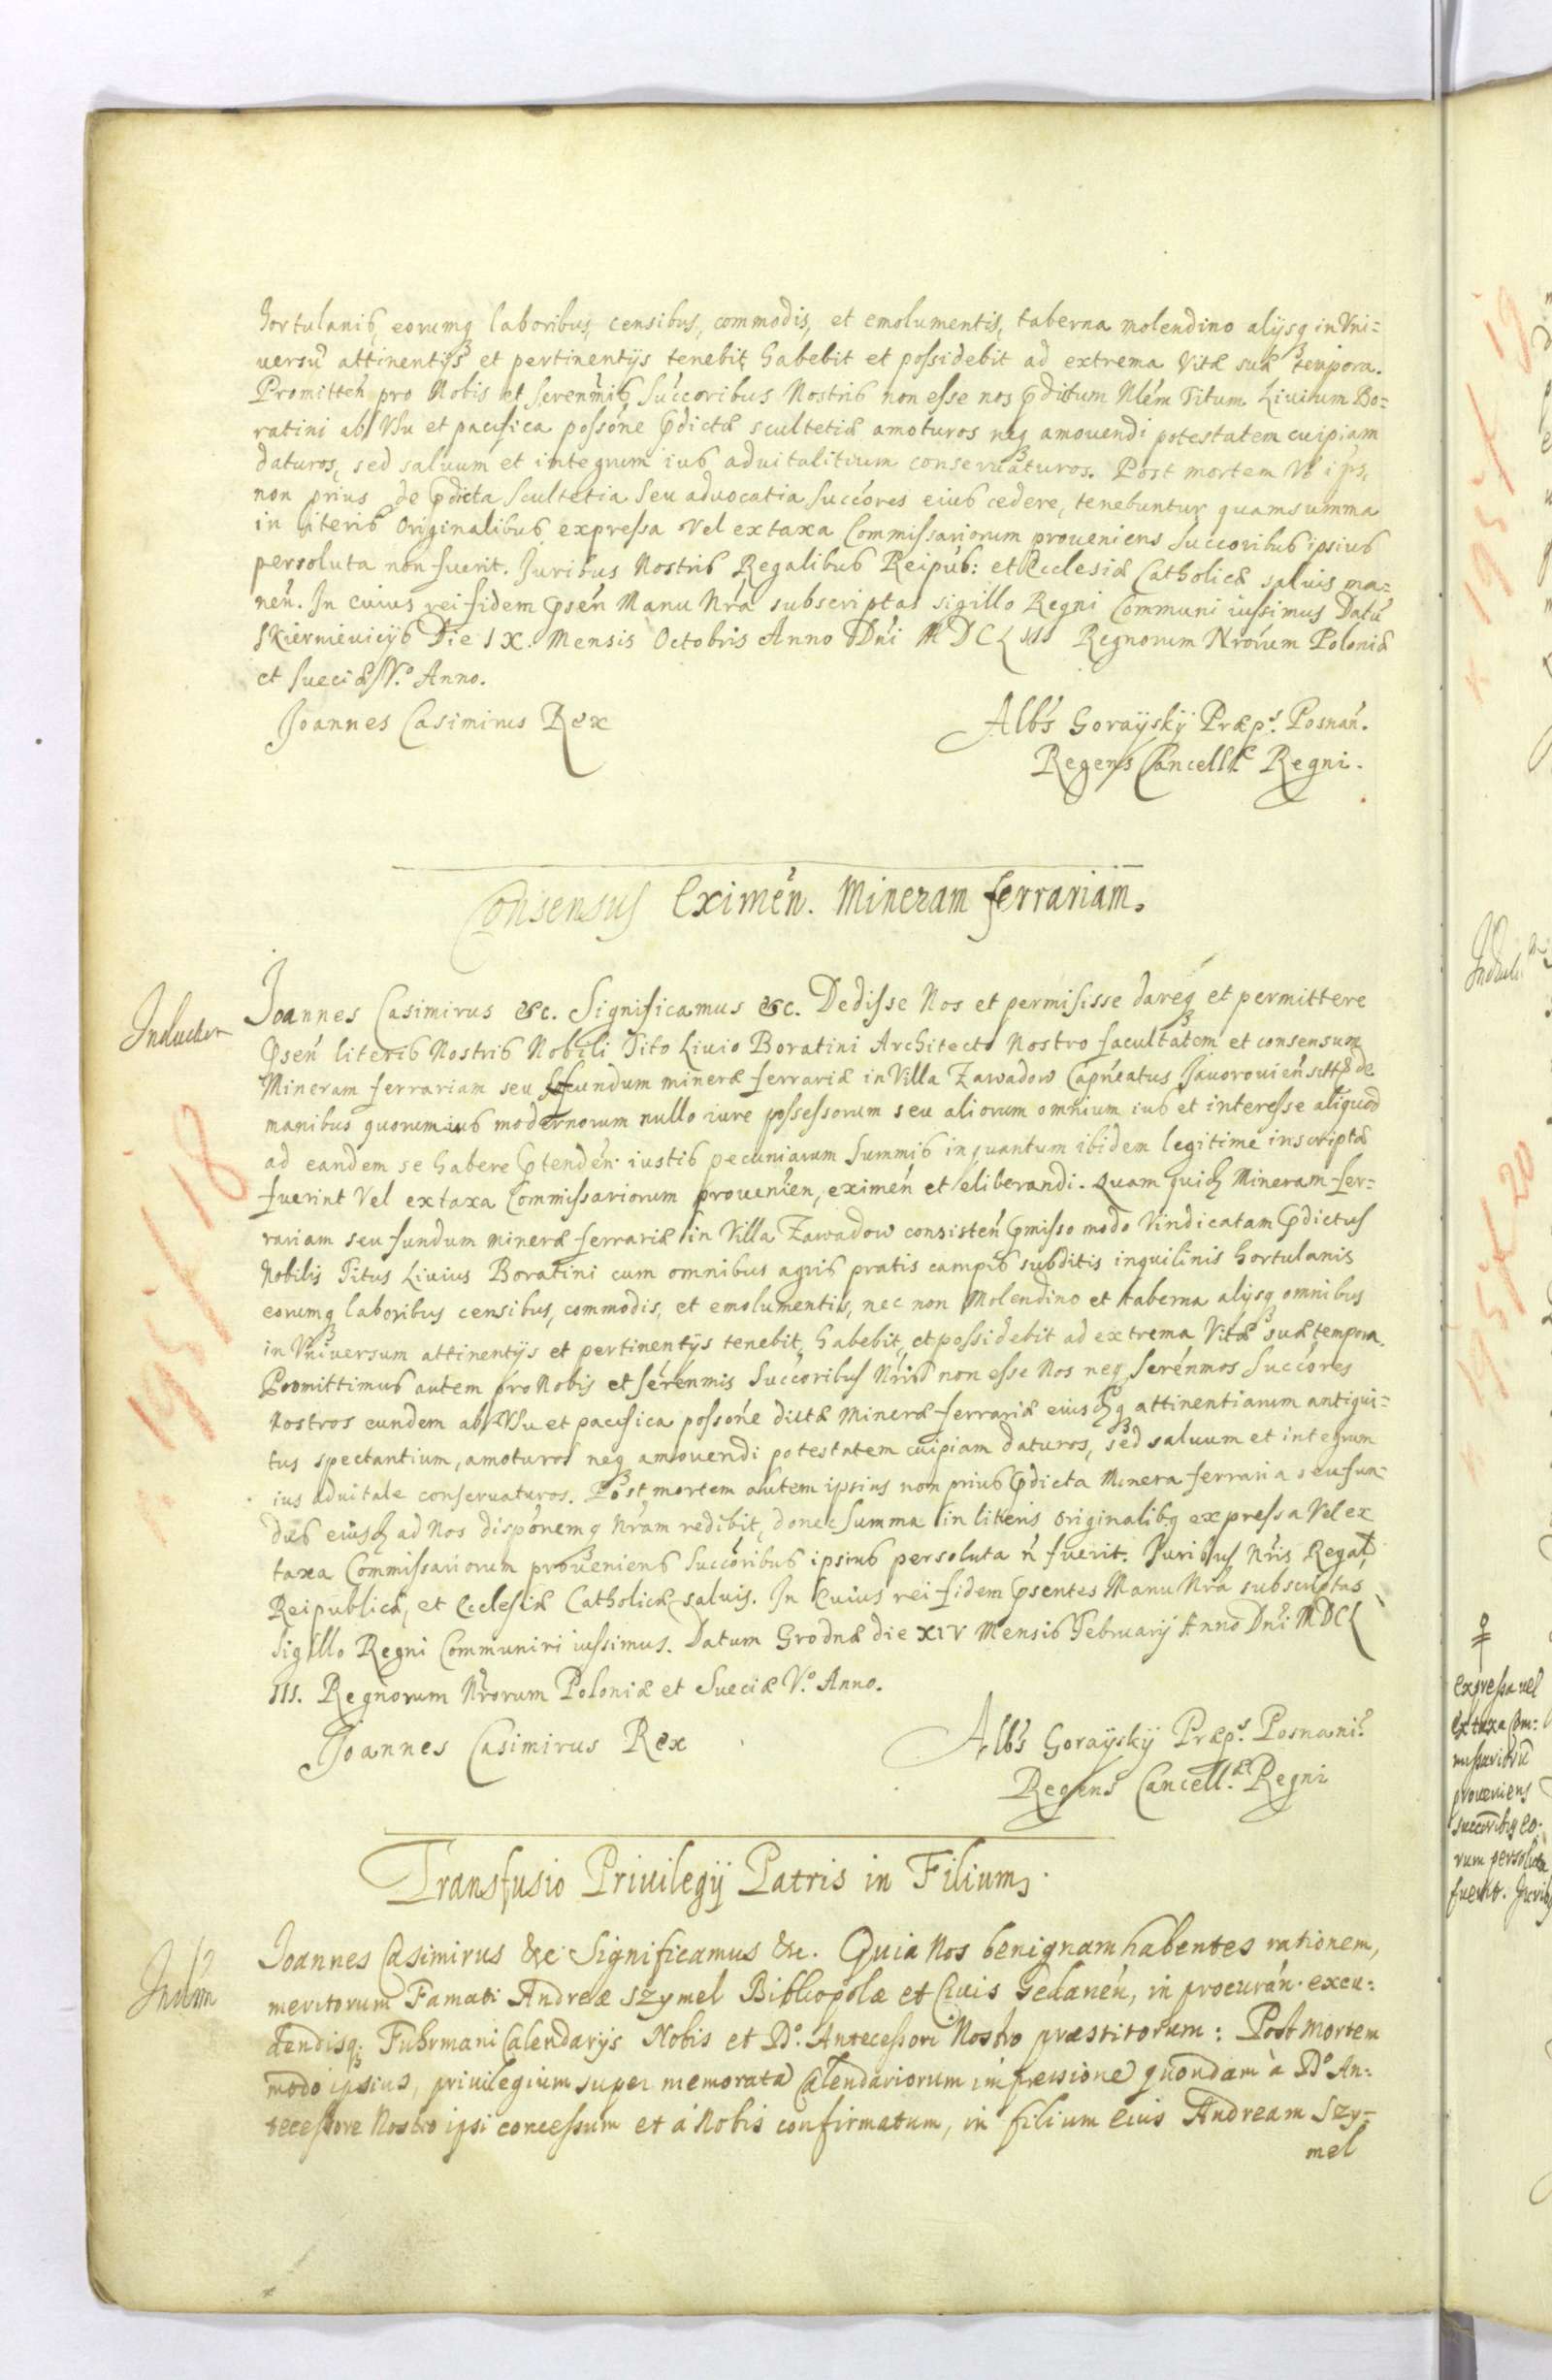 hortulanis, eorumq laboribus, censibus, commodis, et emolumentis, taberna molendino alijsq in Vni=
uersū attinentijs et pertinentijs tenebit habebit et possidebit ad extrema Vitæ suæ tempora.
Promitteń pro Nobis et Serenmis Succoribus Nostris non esse nos pdictum Nlem Titum Liuium Bo=
ratini ab Vsu et pacifica possone pdictæ scultetiæ amoturos neq amouendi potestatem cuipiam
daturos, sed saluum et integrum ius aduitalitium conseruaturos. Post mortem Vo ips,
non prius de pdicta Scultetia Seu aduocatia Succores eius cedere, tenebuntur quam summa
in literis Originalibus expressa Vel ex taxa Commissariorum proueniens Succoribus ipsius
persoluta non fuerit. Juribus Nostris Regalibus Reipub: et Ecclesiæ Catholicæ saluis ma=
neń. In cuius rei fidem pseń Manu Nra subscriptas sigillo Regni Communi iussimus Datū
Skiernieuicijs Die IX. Mensis Octobris Anno Dni MDCLIII Regnorum Nrorum Poloniæ
et Sueciæ V.º Anno.
Joannes Casimirus Rex
Albs Goraÿskÿ Præps. Posnań.
Regens Cancellæ Regni.
Consensus Eximen. Mineram ferrariam.
Joannes Casimirus &c. Significamus &c. Dedisse Nos et permisisse dareq et permittere
pseń literis Nostris Nobili Tito Liuio Boratini Architecto Nostro facultatem et consensum
Mineram ferrariam seu fundum mineræ ferrariæ in Villa Zawadow Capneatus Jauorouień de
manibus quorumius modernorum nullo iure possessorum seu aliorum omnium ius et interesse aliquod
ad eandem se habere ptendeń iustis pecuniarum Summis inquantum ibidem legitime inscriptæ
fuerint Vel ex taxa Commissariorum prouenien, eximeń et eliberandi. Quam quid Mineram fer=
rariam seu fundum mineræ ferrariæ in Villa Zawadow consisteń pmisso modo Vindicatam pdictus
Nobilis Titus Liuius Boratini cum omnibus agris pratis campis subditis inquilinis hortulanis
eorumq laboribus censibus, commodis, et emolumentis, nec non Molendino et taberna alijsq omnibus
in Vniuersum attinentijs et pertinentijs tenebit, habebit, et possidebit ad extrema Vitæ suæ tempora.
Promittimus autem pro Nobis et serenmis Succoribus Nris non esse Nos neq Serenmos Succores
Nostros eundem ab Vsu et pacifica possone dictæ Mineræ ferrariæ eiusdq attinentiarum antiqui=
tus spectantium, amoturos neq amouendi potestatem cuipiam daturos, sed saluum et integrum
ius aduitale conseruaturos. Post mortem autem ipsius non prius pdicta Minera ferraria seu fun=
dus eiusd ad Nos disponemq Nram redibit, donec Summa in literis originalibq expressa Vel ex
taxa Commissariorum proueniens Succoribus ipsius persoluta ń fuerit. Juribus Nris Regal,
Reipublicæ, et Ecclesiæ Catholicæ saluis. In Cuius rei fidem psentes Manu Nra subscriptas
Sigillo Regni Communiri iussimus. Datum Grodnæ die XIV Mensis February Anno Dni MDCL
III. Regnorum Nrorum Poloniæ et Sueciæ V.º Anno.
Joannes Casimirus Rex
Albs Goraÿskÿ Præps. Posnani.
Regens Cancell.æ Regni
Transfusio Priuilegij Patris in Filium.
Joannes Casimirus &c Significamus &c. Quia Nos benignam habentes rationem,
meritorum Famati Andreæ Szymel Bibliopolæ et Ciuis Gedaneń, in procurań. excu=
dendisq; Fuhrmani Calendarijs Nobis et D°. Antecessori Nostro præstitorum: Post mortem
modo ipsius, priuilegium super memorata Calendariorum impressione quondam à D° An=
tecessore Nostro ipsi concessum et á Nobis confirmatum, in filium eius Andream Szy=
mel
expressa vel
ex taxa Com=
missariorū
proueniens
succoribq eo=
rum persoluta
fuerit. Juribq